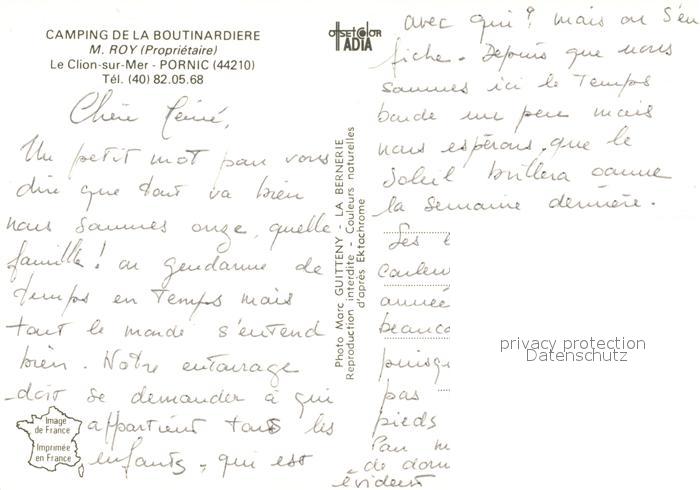 CAMPING DE LA BOUTINARDIERE
M. ROY (Propriétaire)
Le Clion-sur-Mer - PORNIC (44210)
Tél. (40) 82.05.68
Chère
Un petit mot pour vous
dire que tout va bien
nous sommes onze, quelle
famille! on gendarme de
temps en temps mais
tout le monde s'entend
bien. Notre entourage
doit se demander à qui
appartient tous les
enfants, qui est
Image
de France
Imprimée
en France
offset COLOR
ADIA
Photo Marc GUITTENY - LA BERNERIE
Reproduction interdite - Couleurs naturelles
d'après Ektachrome
avec qui? mais on s'en
fiche. Depuis que nous
sommes ici le temps
boude un peu mais
nous espérons que le
soleil brillera comme
la semaine dernière.
Les
couleur
année
beauco
puisqu
pas
pieds
Pan m
de dom
évident
privacy protection
Datenschutz